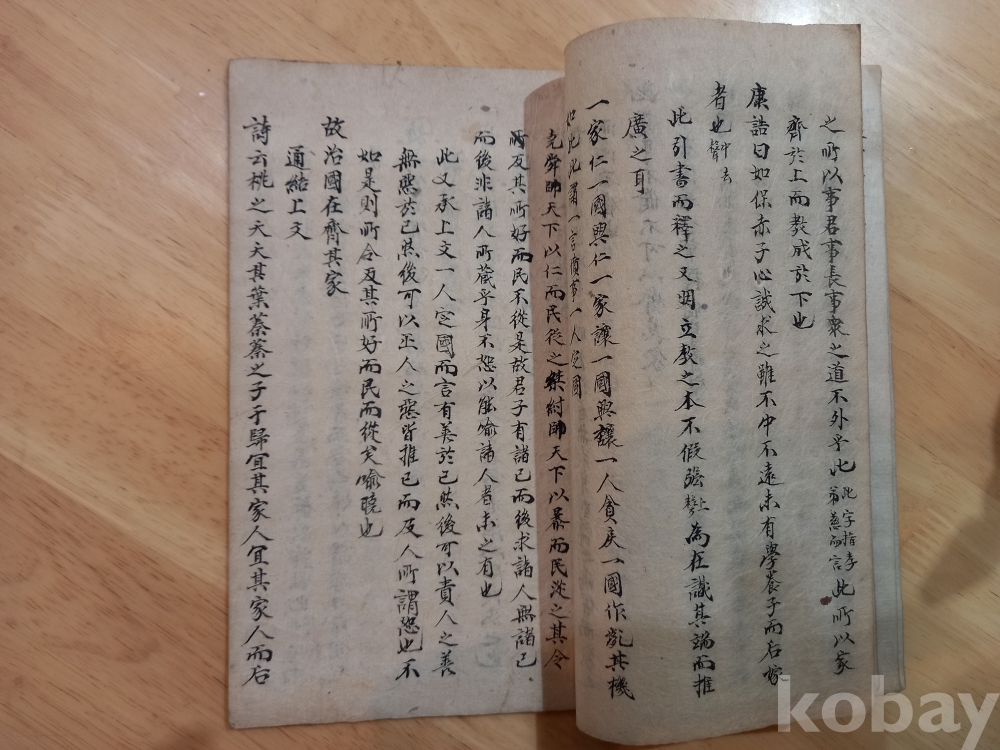 之所以事君事長事衆之道不外乎此此字指孝弟慈而言此所以家
齊於上而敎成於下也
康誥曰如保赤子心誠求之雖不中不遠未有學養子而后嫁
者也中去聲
此引書而釋之又明立敎之本不假强上聲爲在識其端而推
廣之耳
一家仁一國興仁一家讓一國興讓一人貪戾一國作亂其機
如此此謂一言僨事一人定國
堯舜帥天下以仁而民從之桀紂帥天下以暴而民從之其令
所反其所好而民不從是故君子有諸己而後求諸人無諸己
而後非諸人所藏乎身不恕以能喻諸人者未之有也
此又承上文一人定國而言有美於己然後可以責人之善
無惡於己然後可以正人之惡皆推己而及人所謂恕也不
如是則所令反其所好而民而從矣喻曉也
故治國在齊其家
通結上文
詩云桃之夭夭其葉蓁蓁之子于歸宜其家人宜其家人而后
kobay